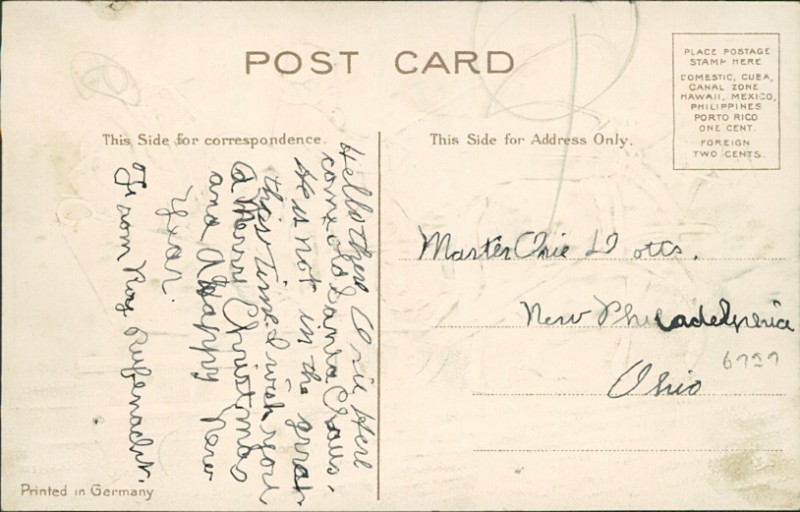 POST CARD
PLACE POSTAGE
STAMP HERE
DOMESTIC, CUBA,
CANAL ZONE
HAWAII, MEXICO,
PHILIPPINES
PORTO RICO
ONE CENT.
FOREIGN
TWO CENTS.
This Side for correspondence.
This Side for Address Only.
Hello there Orie Here
comes old Santa Claus.
He is not in the
this time I wish you
a Merry Christmas
and a Happy New
Year.
From Roy Rufenacht.
Master Orie Dotts.
New Philadelphia
Ohio
Printed in Germany